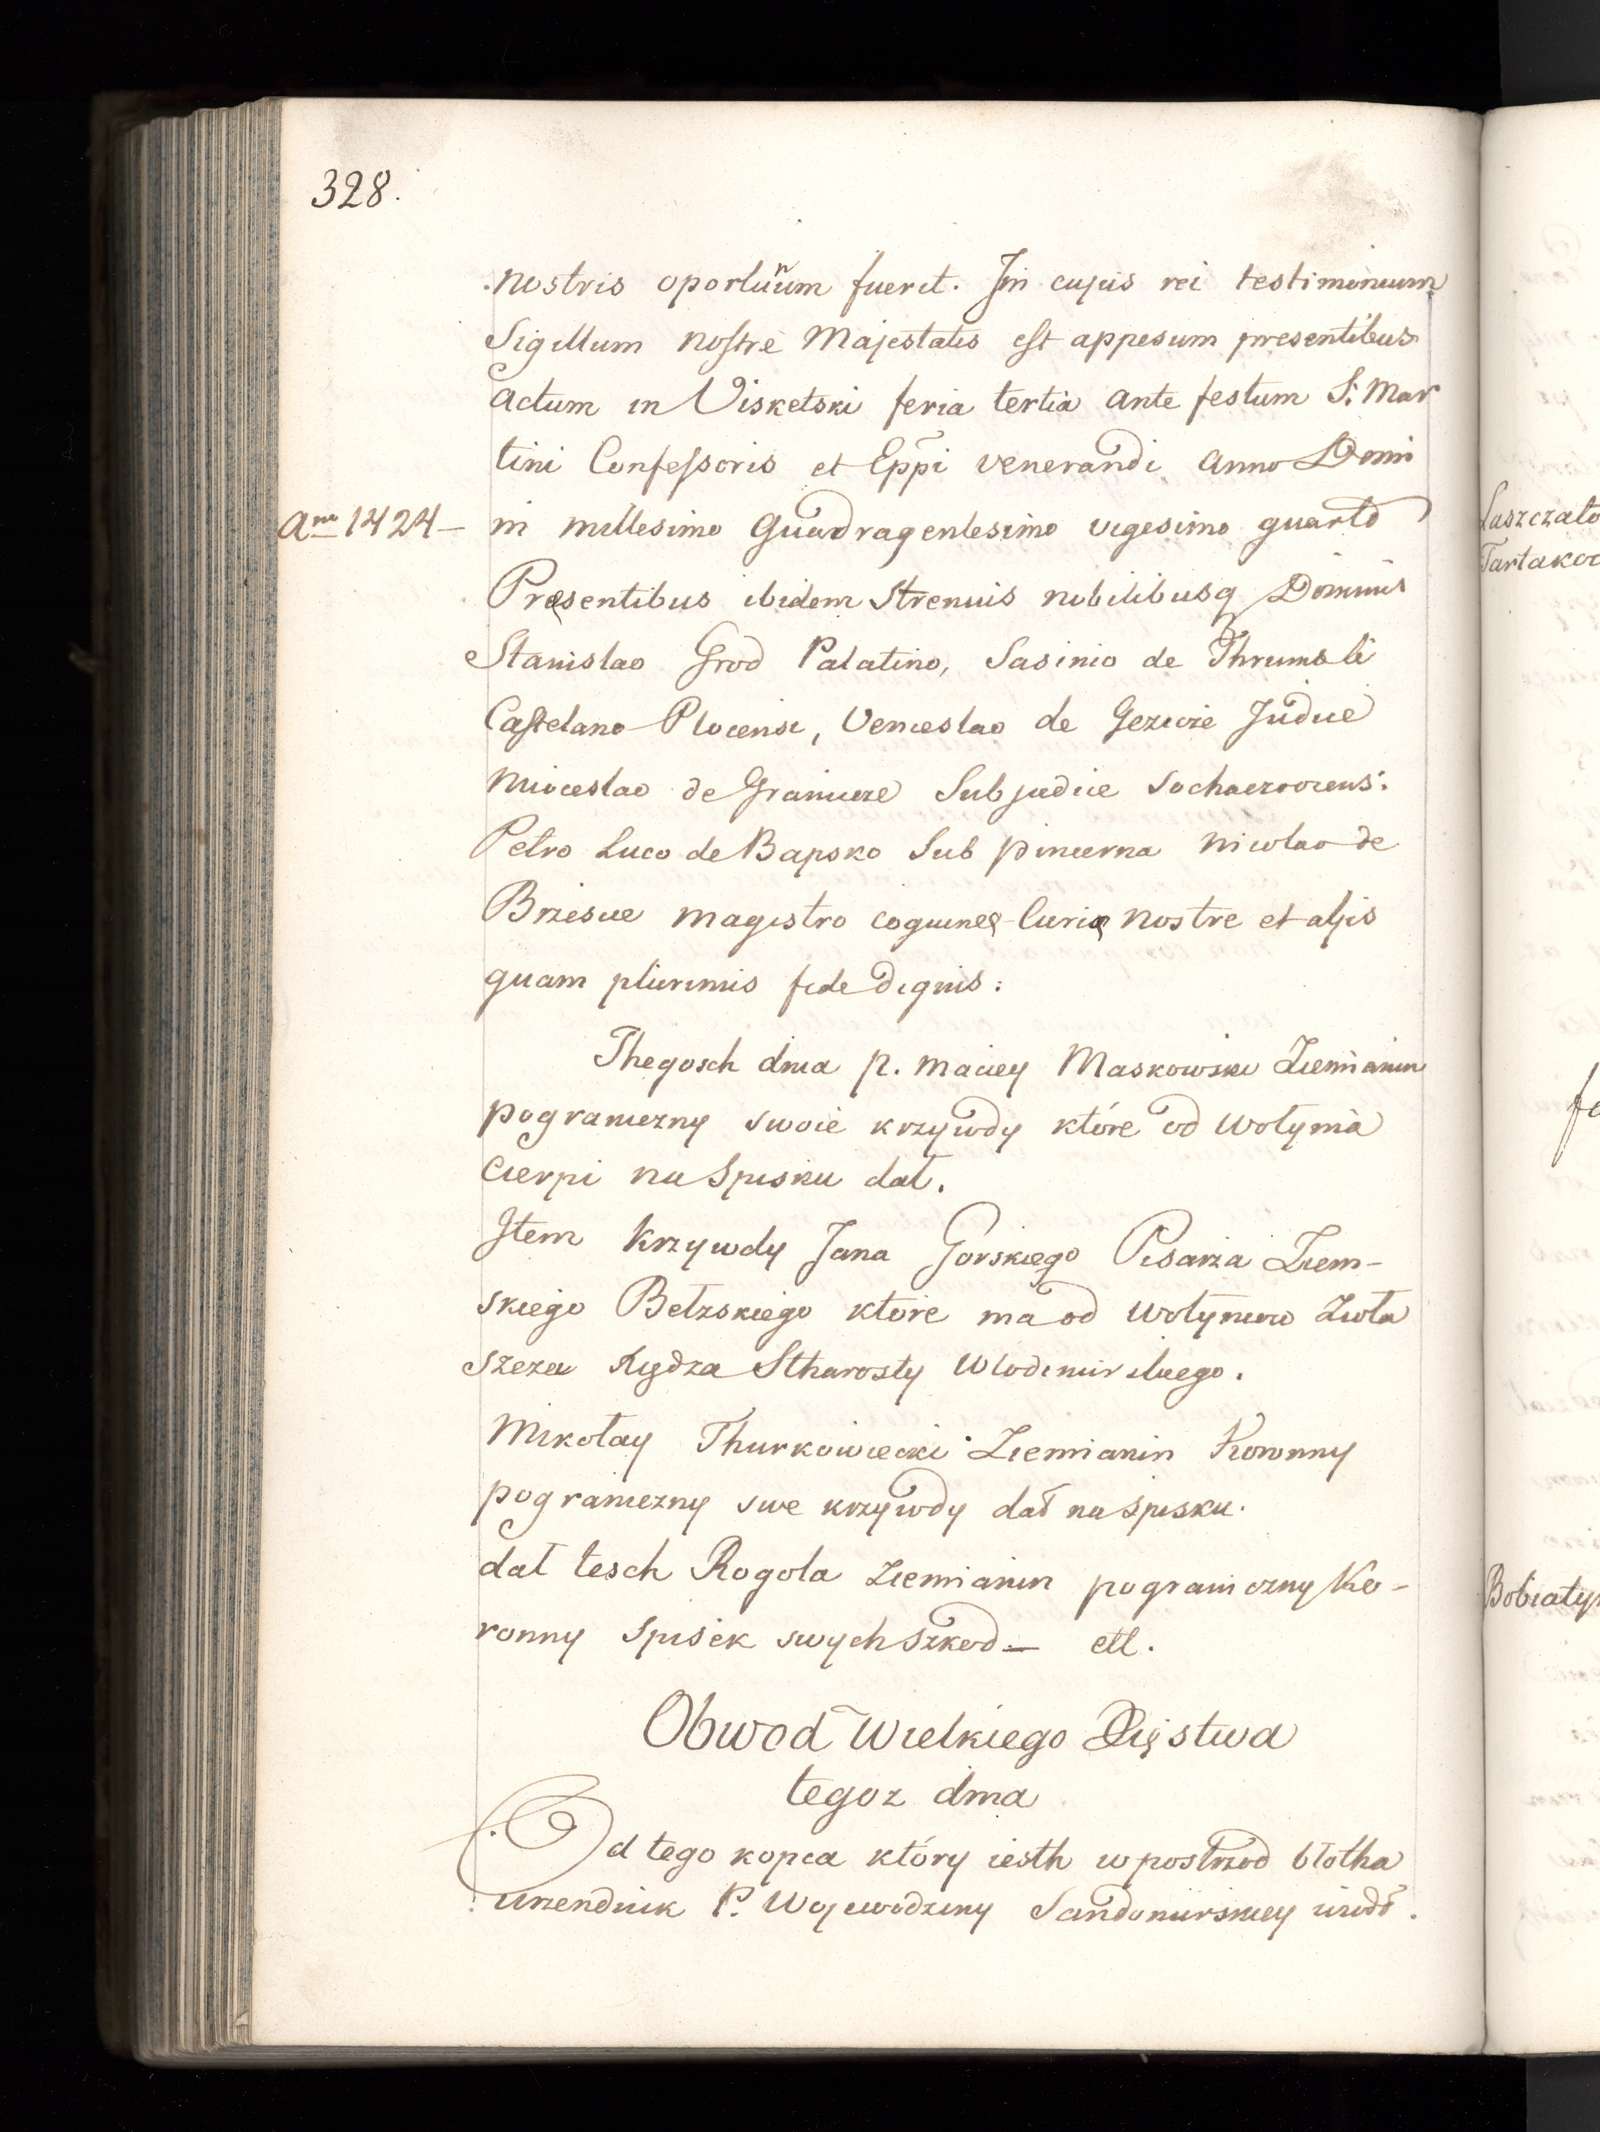 328.
nostris oportunum fuerit. In cujus rei testimonium
Sigillum nostre Majestatis est appesum presentibus
actum in Visketski feria tertia ante festum S. Mar
tini Confessoris et Eppi venerandi anno Domi
Ano 1424 — ni millesimo Quadragentesimo vigesimo quarto
Pręsentibus ibidem Strenuis nobilibusq Dominis
Stanislao Grod Palatino, Sasinio de Thrumbli
Castelano Plocensi, Venceslao de Gezwie Judice
Mioceslao de Granicze Subjudice Sochaczovcens:
Petro Luco de Bapsko Sub pincerna Nicolao de
Brzescie magistro coquinę Curię nostre et alijs
quam plurimis fide dignis:
Thegosch dnia p. Maciey Maskowski Ziemianin
pograniczny swoie krzywdy które od Wołynia
cierpi na Spisku dał.
Item Krzywdy Jana Gorskiego Pisarża Ziem-
skiego Bełzskiego które ma od Wołyncow
szcza Rydza Stharosty Wlodimirskiego.
Mikołay Thurkowiecki Ziemianin Koronny
pograniczny swe krzywdy dał na spisku.
dał tesch Rogola ziemianin pograniczny Ko-
ronny Spisek swych szkod — ett.
Obwod Wielkiego Xięstwa
tegoz dnia
Od tego kopca który iesth wpostrzod błotha
urzendnik P. Wojewodziny Sandomirskiey
Laszczato
Tartakow
Bobiaty